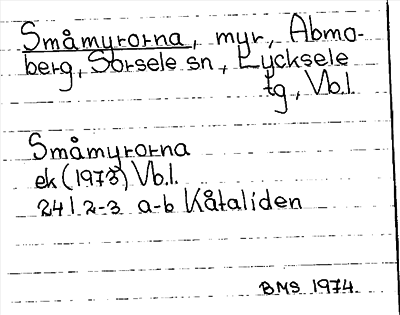 Småmyrorna, myr, Abmo-
berg, Sorsele sn, Lycksele
tg, Vb.l.
Småmyrorna
ek (1973) Vb.l.
24 I 2-3 a-b Kåtaliden
BMS 1974